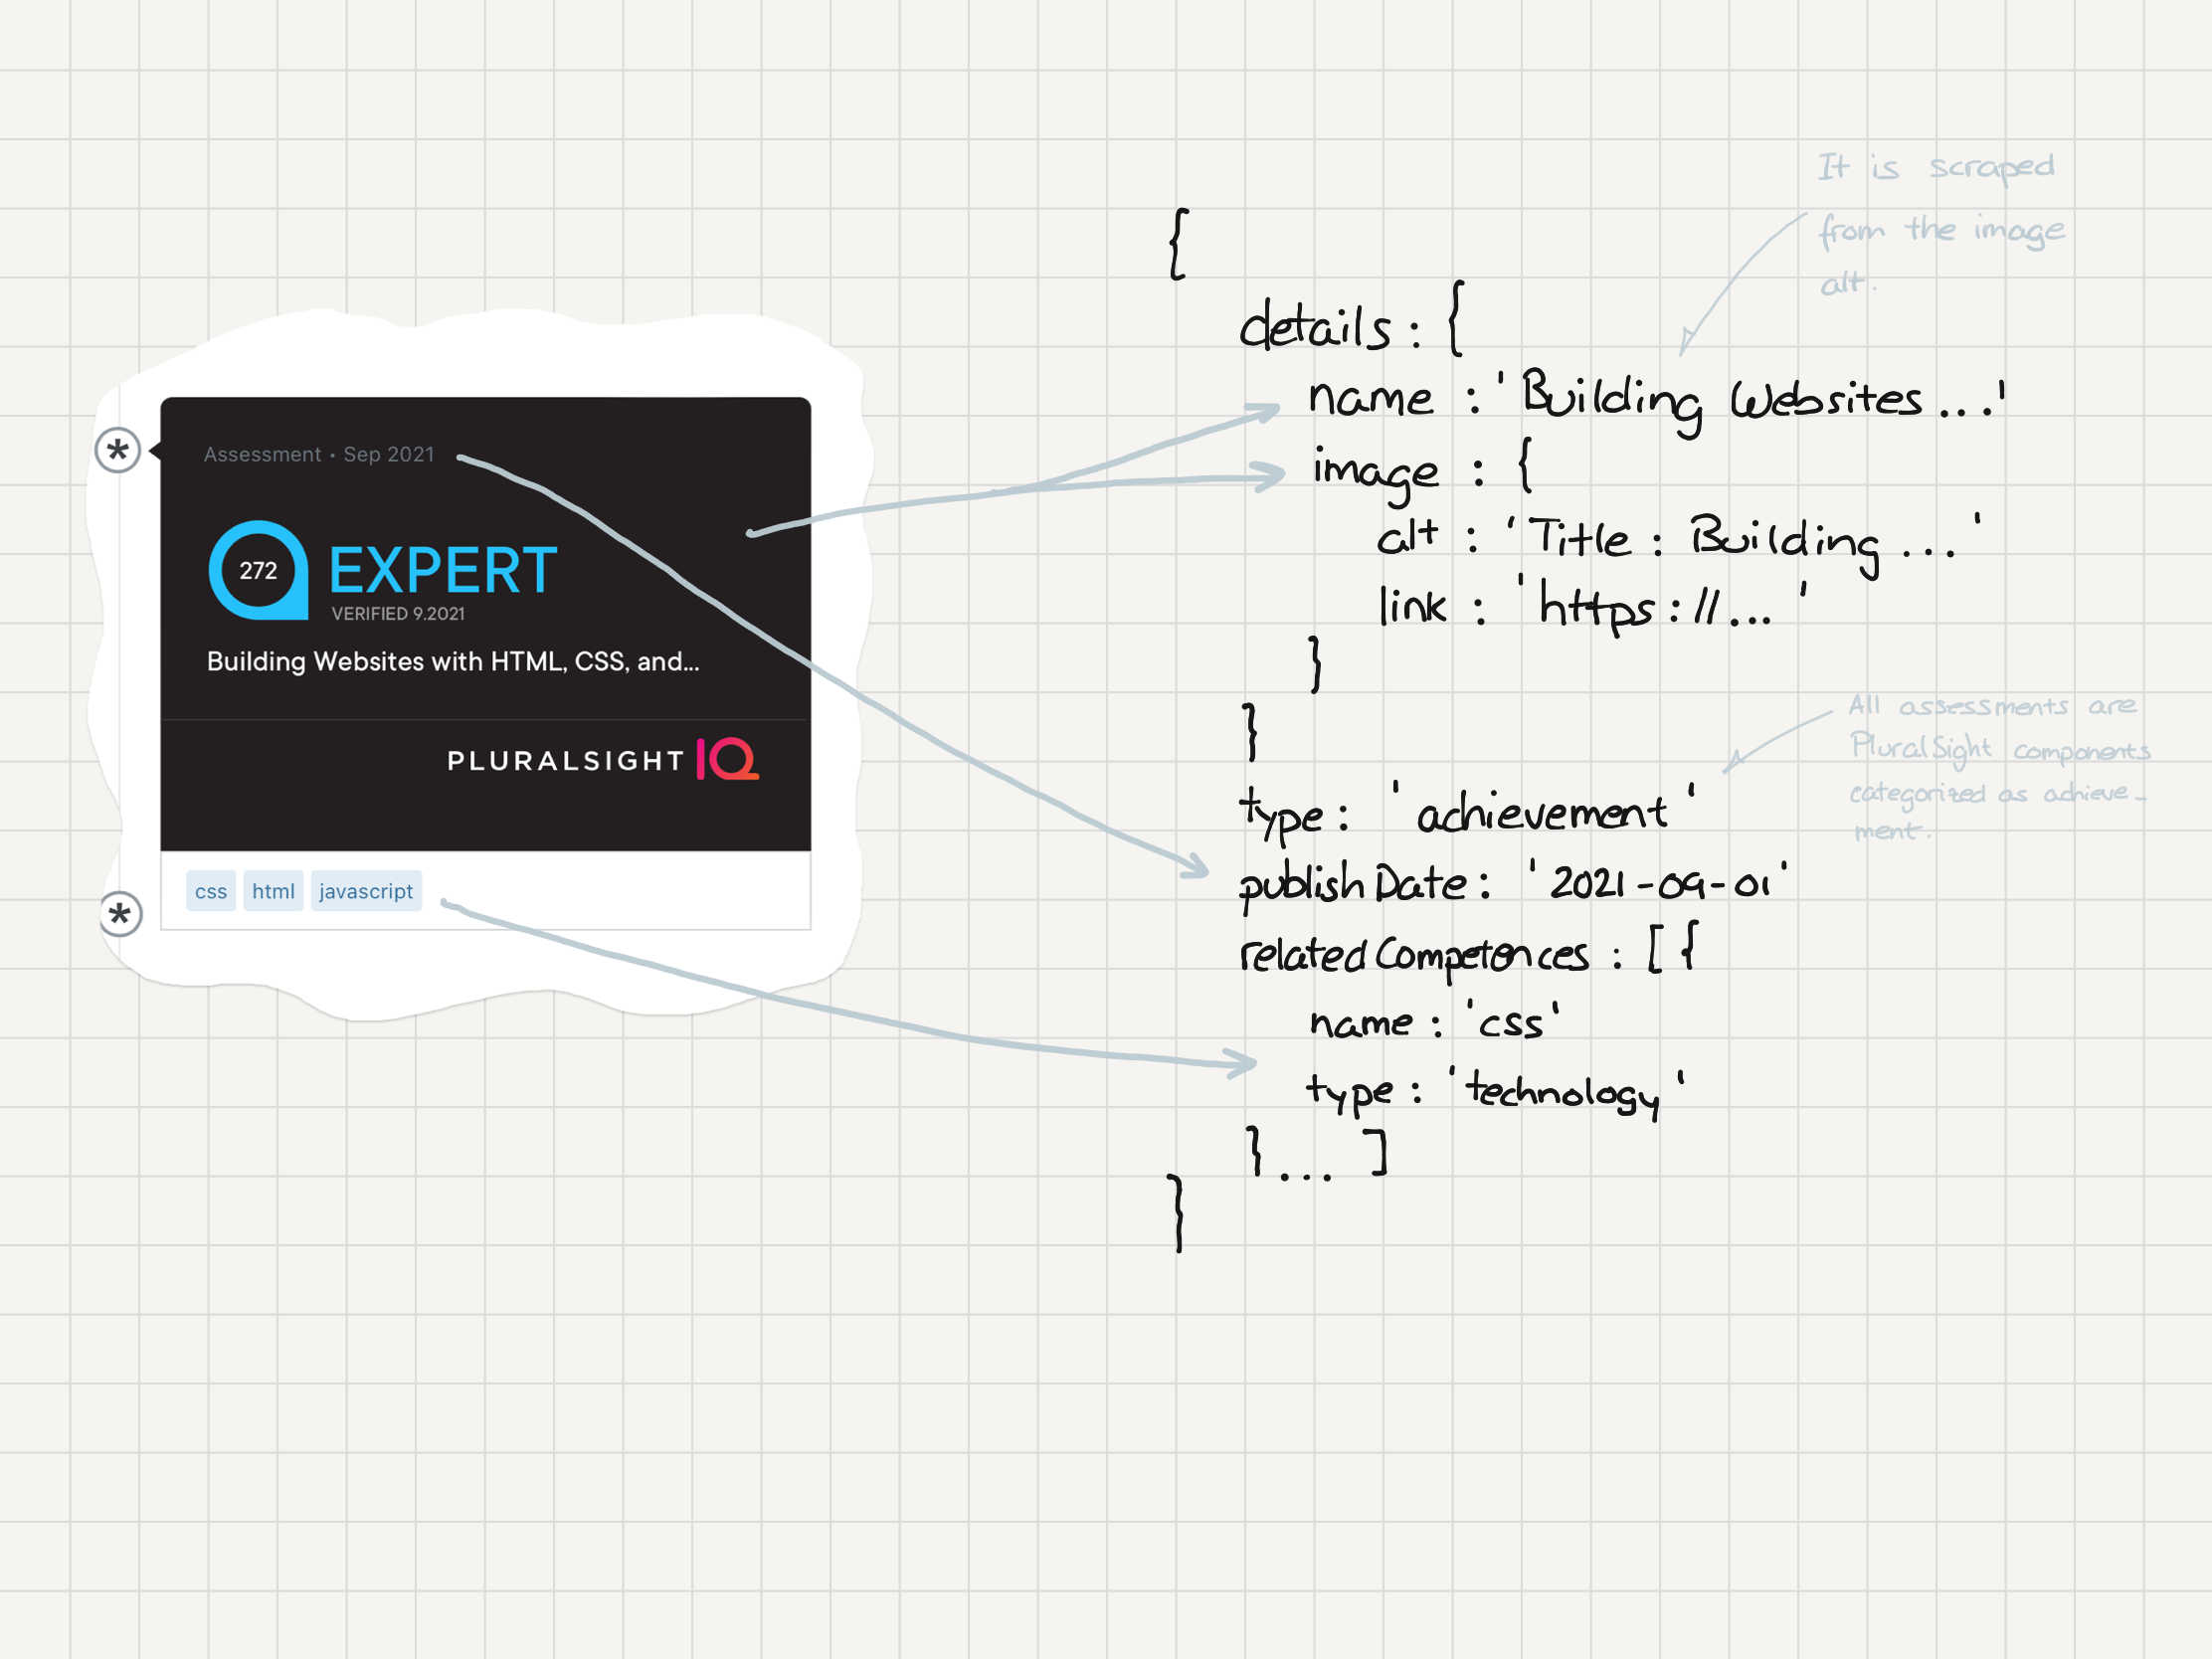 Assessment • Sep 2021
272
EXPERT
VERIFIED 9.2021
Building Websites with HTML, CSS, and...
PLURALSIGHT IQ
css html javascript
{
details : {
name : 'Building Websites ...'
image : {
alt : 'Title : Building ... '
link : 'https://... '
}
}
type : 'achievement'
publishDate : '2021-09-01'
relatedCompetences : [ {
name : 'css'
type : 'technology'
} ... ]
}
It is scraped
from the image
alt.
All assessments are
PluralSight components
categorized as achieve-
ment.